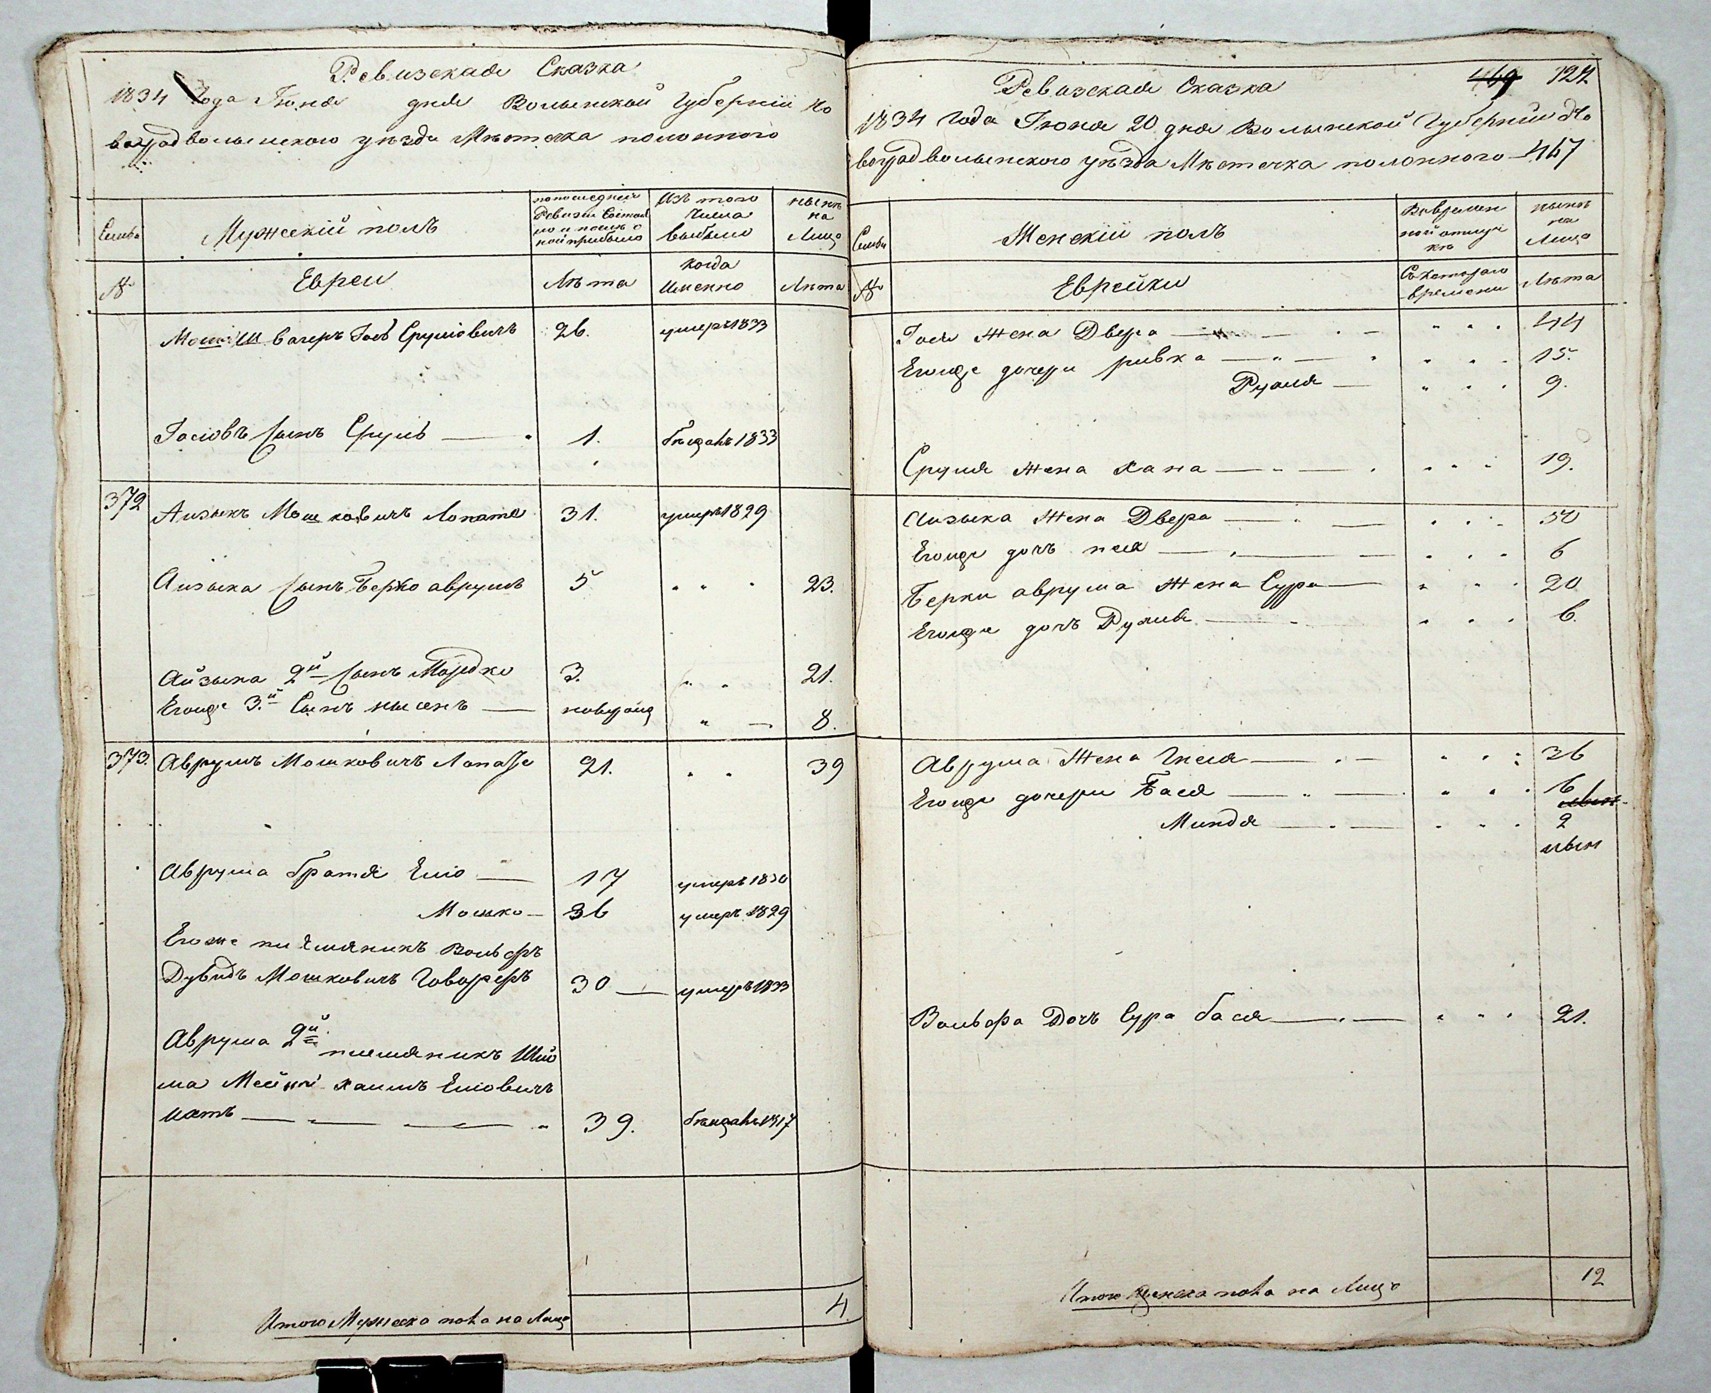 Ревизская Сказка
1834 Года Іюня дня Волынской Губерніи Но
воградволынского уезда Мѣстечка полонного
Семьи
Мужескій полъ
по последней
Ревизіи состоя
ло и после
ной прибыло
Изъ того
числа
выбыло
нынѣ
на
Лицо
№
Евреи
Лѣта
когда
именно
Лѣта
Іось Сруліовичъ 26. умеръ 1833
Іосіовъ Сынъ Сруль 1. 1833
372
Айзыкъ Мошковичъ Лопата 31. умеръ 1829
Айзыка Сынъ Берко аврумъ 5 23.
Айзыка 2й Сынъ Мордко 3. 21.
Егоже 3.й Сынъ нысенъ 8.
373. Аврумъ Мошковичъ Лопата 21. 39
Аврума братья Еліо 17 умеръ 1830
Мошко 36 умеръ 1829
Егоже племяникъ Вольфъ
Дувидъ Мошковичъ 30 умеръ 1833
Аврума 2й племяникъ Шло
ма хаимъ Еліовичъ
39. 1817
Итого Мужеска пола на Лицо 4.
469 124
Ревизская Сказка
1834 Года Іюня 20 дня Волынской Губерніи Но
воградволынского уезда Мѣстечка полонного 467
Семьи
Женскій полъ
Во времен
ной отлуч
кѣ
нынѣ
на
Лицо
№
Еврейки
Съ которого
времени
Лѣта
Іося Жена Двера 44
Егоже дочери ривка 15.
Рухля 9.
Сруля Жена Хана 19.
Айзыка Жена Двера 50
Егоже дочъ 6
Берки аврума Жена Сура 20
Егоже дочъ 6.
Аврума Жена 36
Егоже дочери Бася 6
Миндя 2
Вольфа Дочъ Сура бася 21.
Итого Женска пола на Лицо 12